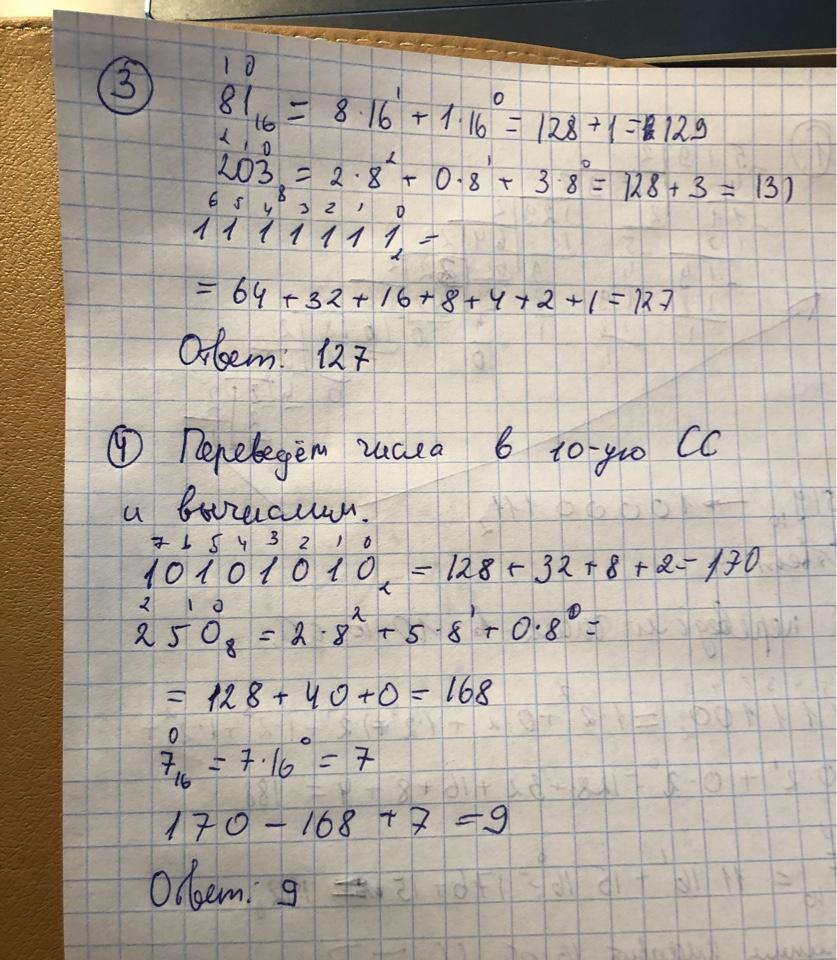 ③ 81₁₆ = 8·16¹ + 1·16⁰ = 128 + 1 = 129
203₈ = 2·8² + 0·8¹ + 3·8⁰ = 128 + 3 = 131
6 5 4 3 2 1 0
1111111₂ =
= 64 + 32 + 16 + 8 + 4 + 2 + 1 = 127
Ответ: 127
④ Переведём числа в 10-ую СС
и вычислим.
7 6 5 4 3 2 1 0
10101010₂ = 128 + 32 + 8 + 2 = 170
2 1 0
250₈ = 2·8² + 5·8¹ + 0·8⁰ =
= 128 + 40 + 0 = 168
0
7₁₆ = 7·16⁰ = 7
170 - 168 + 7 = 9
Ответ: 9